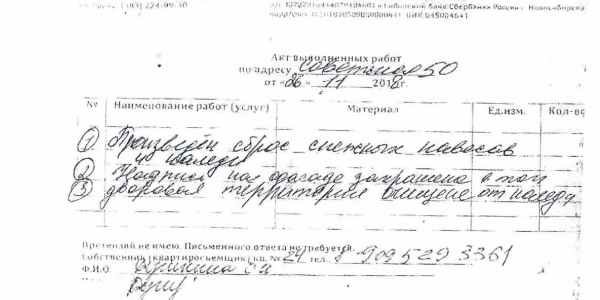 (383) 224-99-30
«Сибирский банк Сбербанка России» г. Новосибирска
БИК 045004641
Акт выполненных работ
по адресу Советская 50
от «26» 11 2018г.
№ Наименование работ (услуг) Материал Ед.изм. Кол-во
1 Произведён сброс снежных навесов
и наледи
2 Надпись на фасаде закрашена в тон
3 дворовая территория очищена от наледи
Претензий не имею. Письменного ответа не требуется.
Собственник (квартиросъемщик) кв. № 24 тел. 8-909 529 3361
Ф.И.О.